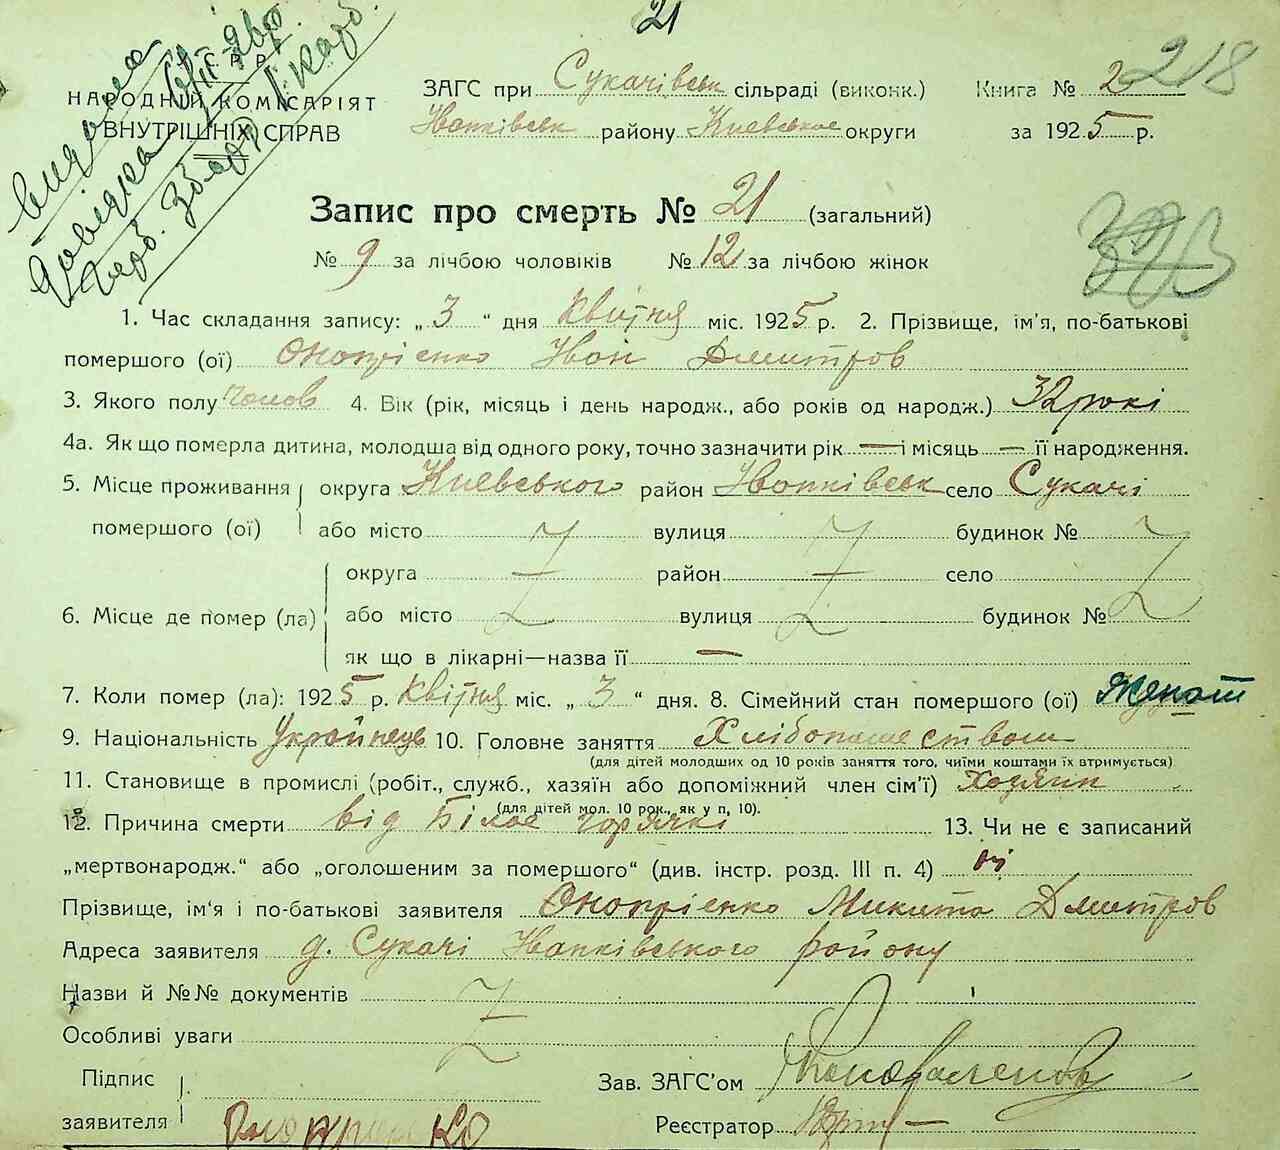 21
218
видана
довідка
С Р Р
НАРОДНИЙ КОМІСАРІЯТ
ВНУТРІШНІХ СПРАВ
ЗАГС при Сукачівськ сільраді (виконк.) Книга № 2
району Киевськое округи за 1925 р.
Запис про смерть № 21 (загальний)
№ 9 за лічбою чоловіків № 12 за лічбою жінок
1. Час складання запису: „ 3 “ дня Квітня міс. 1925 р. 2. Прізвище, ім'я, по-батькові
помершого (ої) Онопрієнко Іван Дмитров
3. Якого полу Чолов 4. Вік (рік, місяць і день народж., або років од народж.) 32 рокі
4а. Як що померла дитина, молодша від одного року, точно зазначити рік — і місяць — її народження.
5. Місце проживання округа Киевського район село Сукачі
помершого (ої) або місто вулиця будинок №
округа район село
6. Місце де помер (ла) або місто вулиця будинок №
як що в лікарні—назва її —
7. Коли помер (ла): 1925 р. Квітня міс. „ 3 “ дня. 8. Сімейний стан помершого (ої) Жунат
9. Національність Украйнець 10. Головне заняття Хлібопашеством
(для дітей молодших од 10 років заняття того, чиїми коштами їх втримується)
11. Становище в промислі (робіт., служб., хазяїн або допоміжний член сім'ї) Ходяин
(для дітей мол. 10 рок., як у п, 10).
12. Причина смерти від Білое горячкі 13. Чи не є записаний
„мертвонародж.“ або „оголошеним за помершого“ (див. інстр. розд. III п. 4) ні
Прізвище, ім'я і по-батькові заявителя Онопрієнко Микита Дмитров
Адреса заявителя д. Сукачі району
Назви й №№ документів
Особливі уваги
Підпис
заявителя
Зав. ЗАГС'ом
Реєстратор